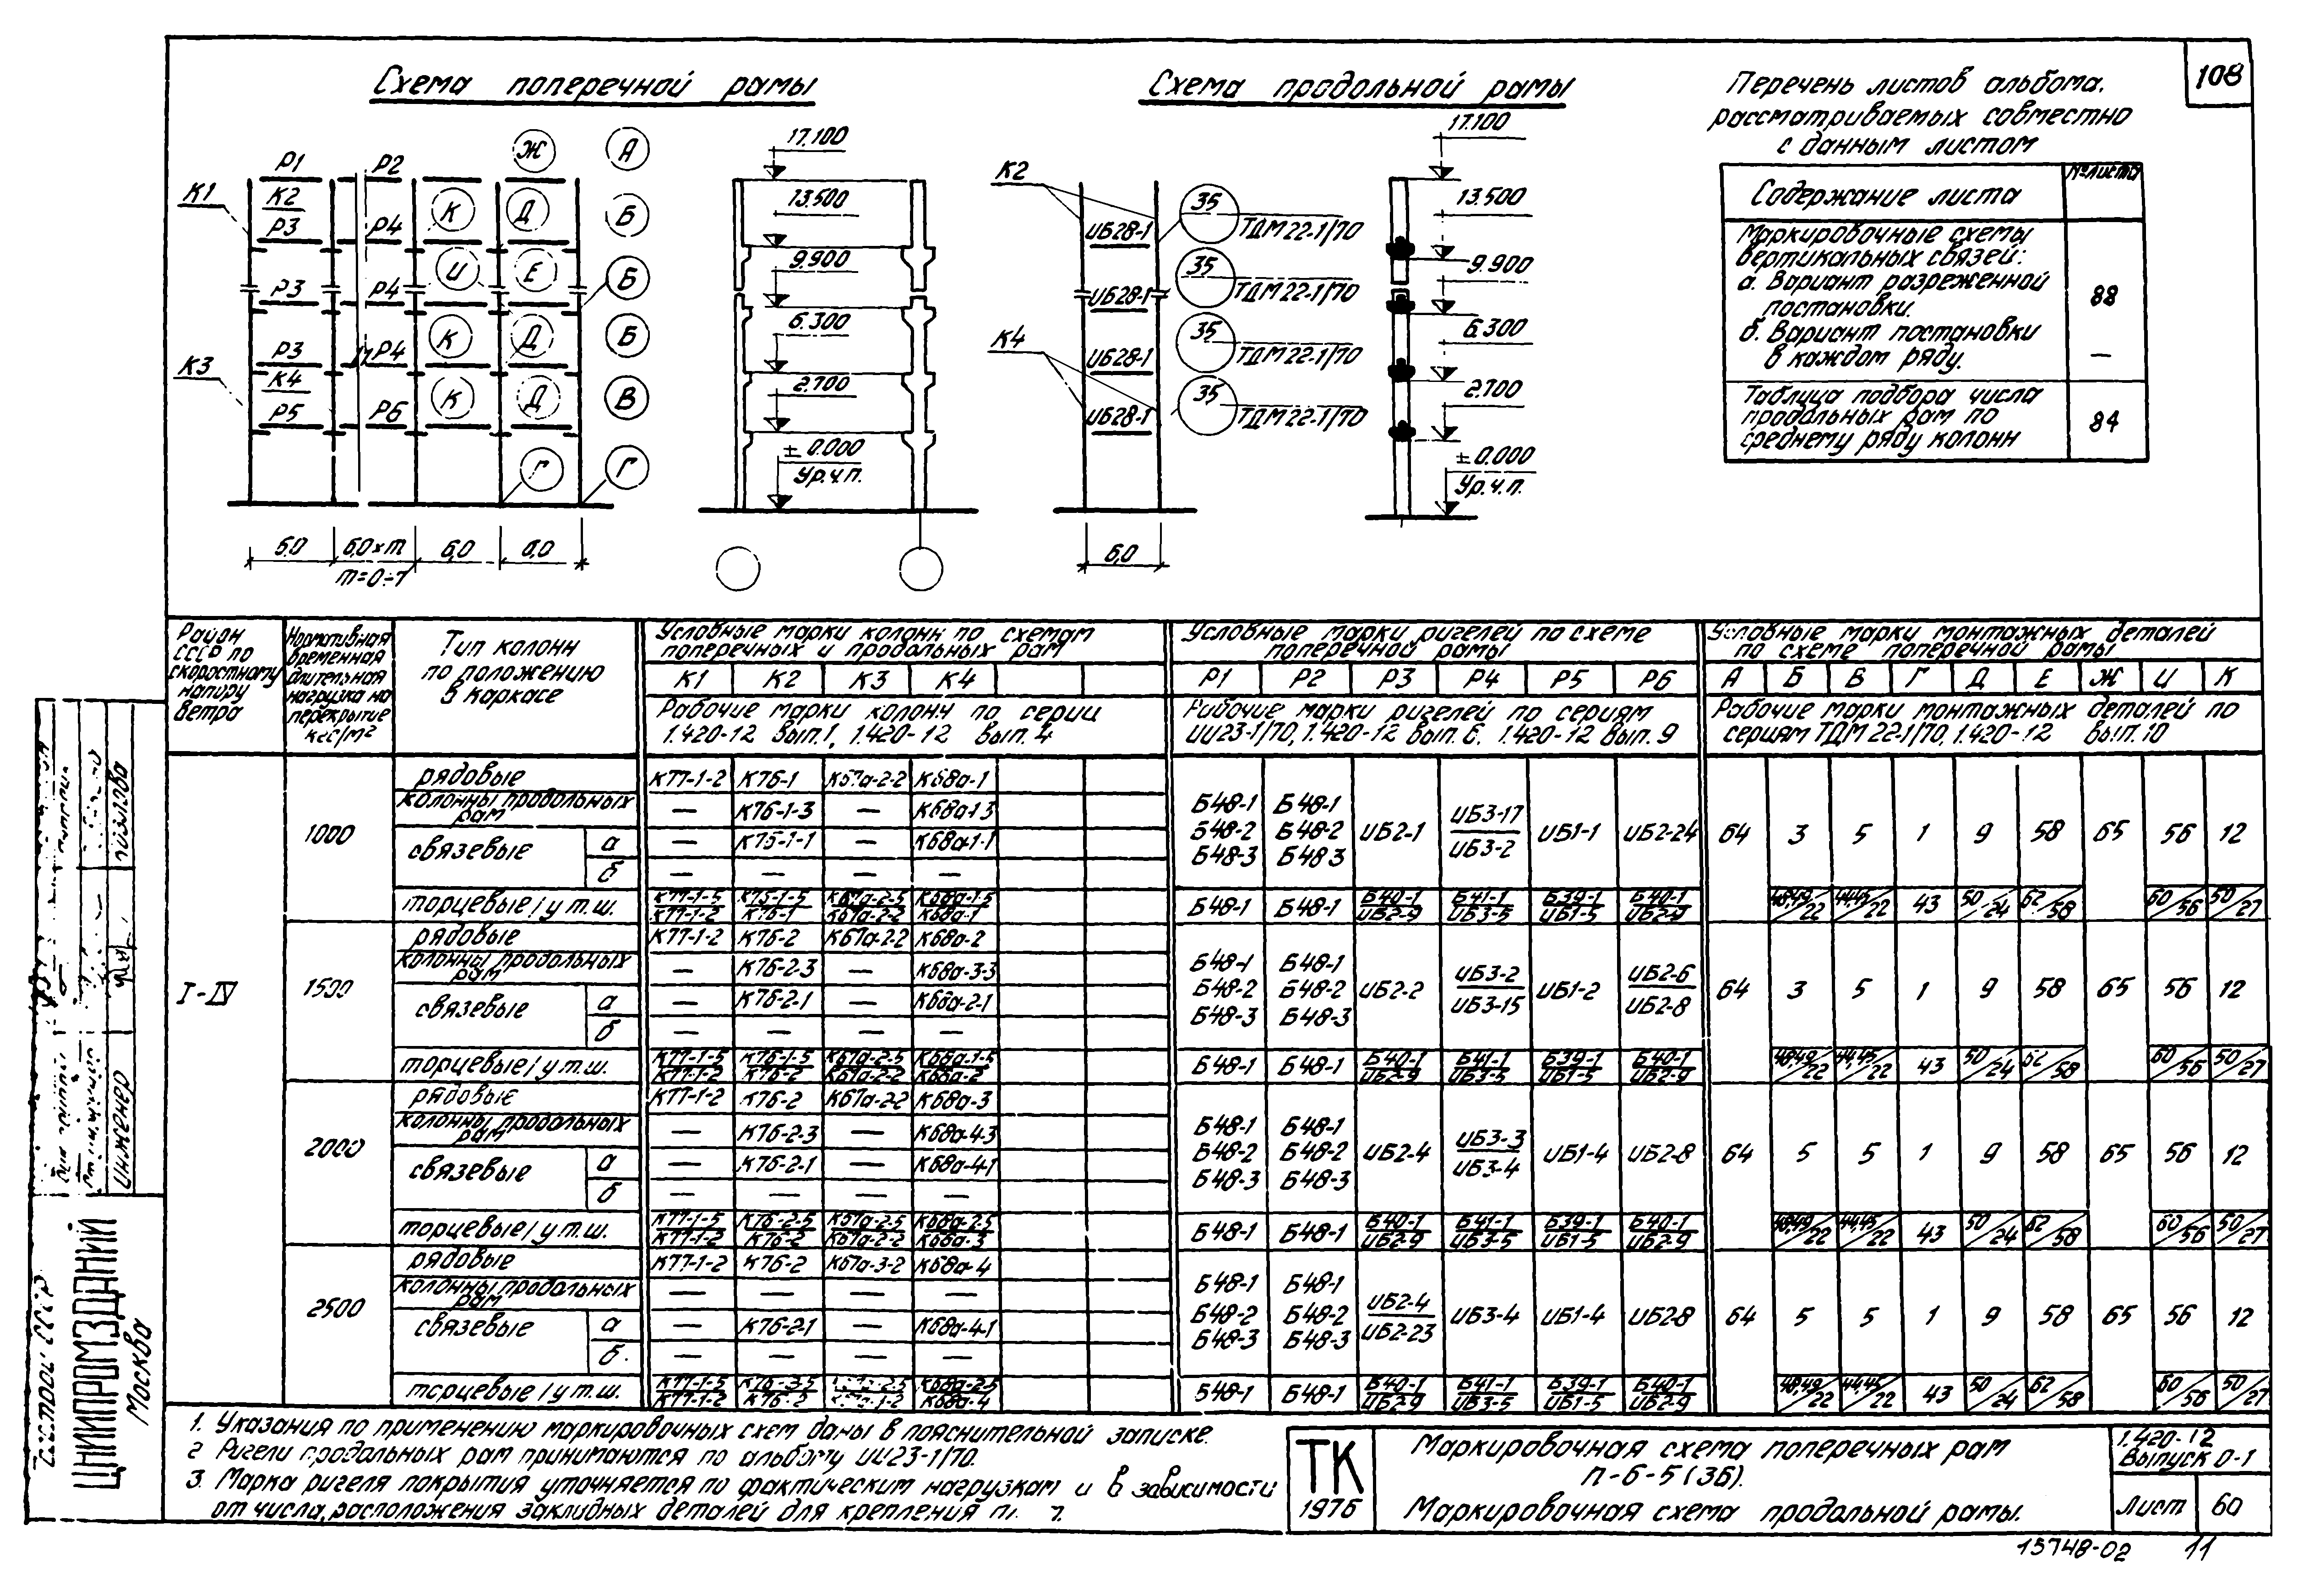 108
Схема поперечной рамы
Схема продольной рамы
Перечень листов альбома,
рассматриваемых совместно
с данным листом
Содержание листа № листа
Маркировочные схемы
вертикальных связей:
а. Вариант разреженной
постановки. 88
б. Вариант постановки
в каждом ряду. —
Таблица подбора числа
продольных рам по
среднему ряду колонн 84
Р1 Р2 Ж А
К1 К2 К Д Б
Р3 Р4
И Е Б
Р3 Р4
К Д Б
Р3 Р4
К3 К4 К Д В
Р5 Р6
Г Г
6,0 6,0×m 6,0 6,0
m=0÷7
17.100
13.500
9.900
6.300
2.700
±0.000
Ур.ч.п.
К2
К4
ИБ28-1 35 ТДМ22-1/70
ИБ28-1 35 ТДМ22-1/70
ИБ28-1 35 ТДМ22-1/70
ИБ28-1 35 ТДМ22-1/70
6,0
17.100
13.500
9.900
6.300
2.700
±0.000
Ур.ч.п.
Район
СССР по
скоростному
напору
ветра
Нормативная
временная
длительная
нагрузка на
перекрытие
кгс/м²
Тип колонн
по положению
в каркасе
Условные марки колонн по схемам
поперечных и продольных рам
К1 К2 К3 К4
Рабочие марки колонн по серии
1.420-12 вып.1, 1.420-12 вып.4
Условные марки ригелей по схеме
поперечной рамы
Р1 Р2 Р3 Р4 Р5 Р6
Рабочие марки ригелей по сериям
ИИ23-1/70, 1.420-12 вып.6. 1.420-12 вып.9
Условные марки монтажных деталей
по схеме поперечной рамы
А Б В Г Д Е Ж И К
Рабочие марки монтажных деталей по
сериям ТДМ 22-1/70, 1.420-12 вып.10
I-IV
1000
рядовые К77-1-2 К76-1 К67а-2-2 К68а-1
колонны продольных рам — К76-1-3 — К68а-1-3
связевые а — К76-1-1 — К68а-1-1
б — — — —
Б48-1 Б48-1
Б48-2 Б48-2 ИБ2-1 ИБ3-17/ИБ3-2 ИБ1-1 ИБ2-24 64 3 5 1 9 58 65 56 12
Б48-3 Б48-3
торцевые/у т.ш. К77-1-5/К77-1-2 К76-1-5/К76-1 К67а-2-5/К67а-2-2 К68а-1-5/К68а-1 Б48-1 Б48-1 Б40-1/ИБ2-9 Б41-1/ИБ3-5 Б39-1/ИБ1-5 Б40-1/ИБ2-9 48,49/22 44,45/22 43 50/24 62/58 60/56 50/27
1500
рядовые К77-1-2 К76-2 К67а-2-2 К68а-2
колонны продольных рам — К76-2-3 — К68а-3-3
связевые а — К76-2-1 — К68а-2-1
б — — — —
Б48-1 Б48-1
Б48-2 Б48-2 ИБ2-2 ИБ3-2/ИБ3-15 ИБ1-2 ИБ2-6/ИБ2-8 64 3 5 1 9 58 65 56 12
Б48-3 Б48-3
торцевые/у т.ш. К77-1-5/К77-1-2 К76-1-5/К76-2 К67а-2-5/К67а-2-2 К68а-1-5/К68а-2 Б48-1 Б48-1 Б40-1/ИБ2-9 Б41-1/ИБ3-5 Б39-1/ИБ1-5 Б40-1/ИБ2-9 48,49/22 44,45/22 43 50/24 62/58 60/56 50/27
2000
рядовые К77-1-2 К76-2 К67а-2-2 К68а-3
колонны продольных рам — К76-2-3 — К68а-4-3
связевые а — К76-2-1 — К68а-4-1
б — — — —
Б48-1 Б48-1
Б48-2 Б48-2 ИБ2-4 ИБ3-3/ИБ3-4 ИБ1-4 ИБ2-8 64 5 5 1 9 58 65 56 12
Б48-3 Б48-3
торцевые/у т.ш. К77-1-5/К77-1-2 К76-2-5/К76-2 К67а-2-5/К67а-2-2 К68а-2-5/К68а-3 Б48-1 Б48-1 Б40-1/ИБ2-9 Б41-1/ИБ3-5 Б39-1/ИБ1-5 Б40-1/ИБ2-9 48,49/22 44,45/22 43 50/24 62/58 60/56 50/27
2500
рядовые К77-1-2 К76-2 К67а-3-2 К68а-4
колонны продольных рам — — — —
связевые а — К76-2-1 — К68а-4-1
б — — — —
Б48-1 Б48-1
Б48-2 Б48-2 ИБ2-4/ИБ2-23 ИБ3-4 ИБ1-4 ИБ2-8 64 5 5 1 9 58 65 56 12
Б48-3 Б48-3
торцевые/у т.ш. К77-1-5/К77-1-2 К68а-2-5/К68а-4 Б48-1 Б48-1 Б40-1/ИБ2-9 Б41-1/ИБ3-5 Б39-1/ИБ1-5 Б40-1/ИБ2-9 48,49/22 44,45/22 43 50/24 62/58 60/56 50/27
1. Указания по применению маркировочных схем даны в пояснительной записке.
2 Ригели продольных рам принимаются по альбому ИИ23-1/70.
3. Марка ригеля покрытия уточняется по фактическим нагрузкам и в зависимости
от числа, расположения закладных деталей для крепления
ТК
1976
Маркировочная схема поперечных рам
п-6-5(36).
Маркировочная схема продольной рамы.
1.420-12
Выпуск 0-1
Лист 60
15748-02 11
Госстрой СССР
ЦНИИПРОМЗДАНИЙ
Москва
Инженер